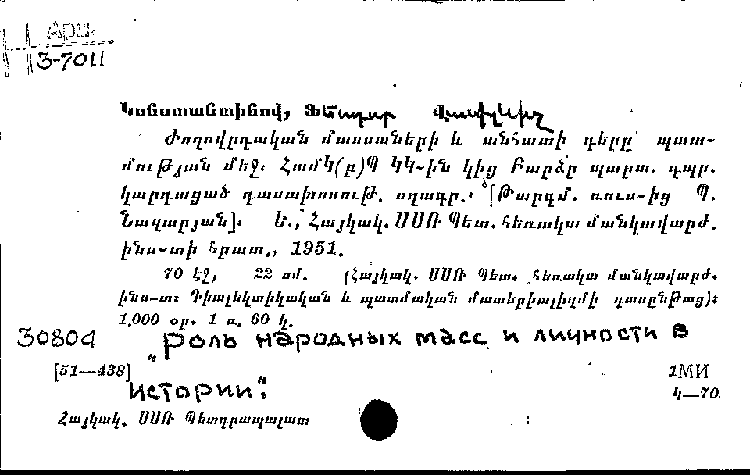 Арм
3-7011
Կոնստանտինով, Ֆեոդոր
Ժողովրդական մասսաների և անհատի դերը պատ-
մության մեջ: Համկ(բ)Պ ԿԿ-ին կից Բարձր պարտ. դպր.
կարդացած դասախոսութ. սղագր.: [Թարգմ. ռուս-ից Պ.
Նազարյան]: Ե., Հայկակ. ՍՍՌ Պետ. հեռակա մանկավարժ.
ինս-տի հրատ., 1951.
70 էջ, 22 սմ. (Հայկակ. ՍՍՌ Պետ. հեռակա մանկավարժ.
ինս-տ: Դիալեկտիկական և պատմական մատերիալիզմի դասընթաց):
1,000 օր. 1 ռ. 60 կ.
30804 "роль народных масс и личности в
[51—438] 1МИ
истории". Կ—70
Հայկակ. ՍՍՌ Պետգրապալատ